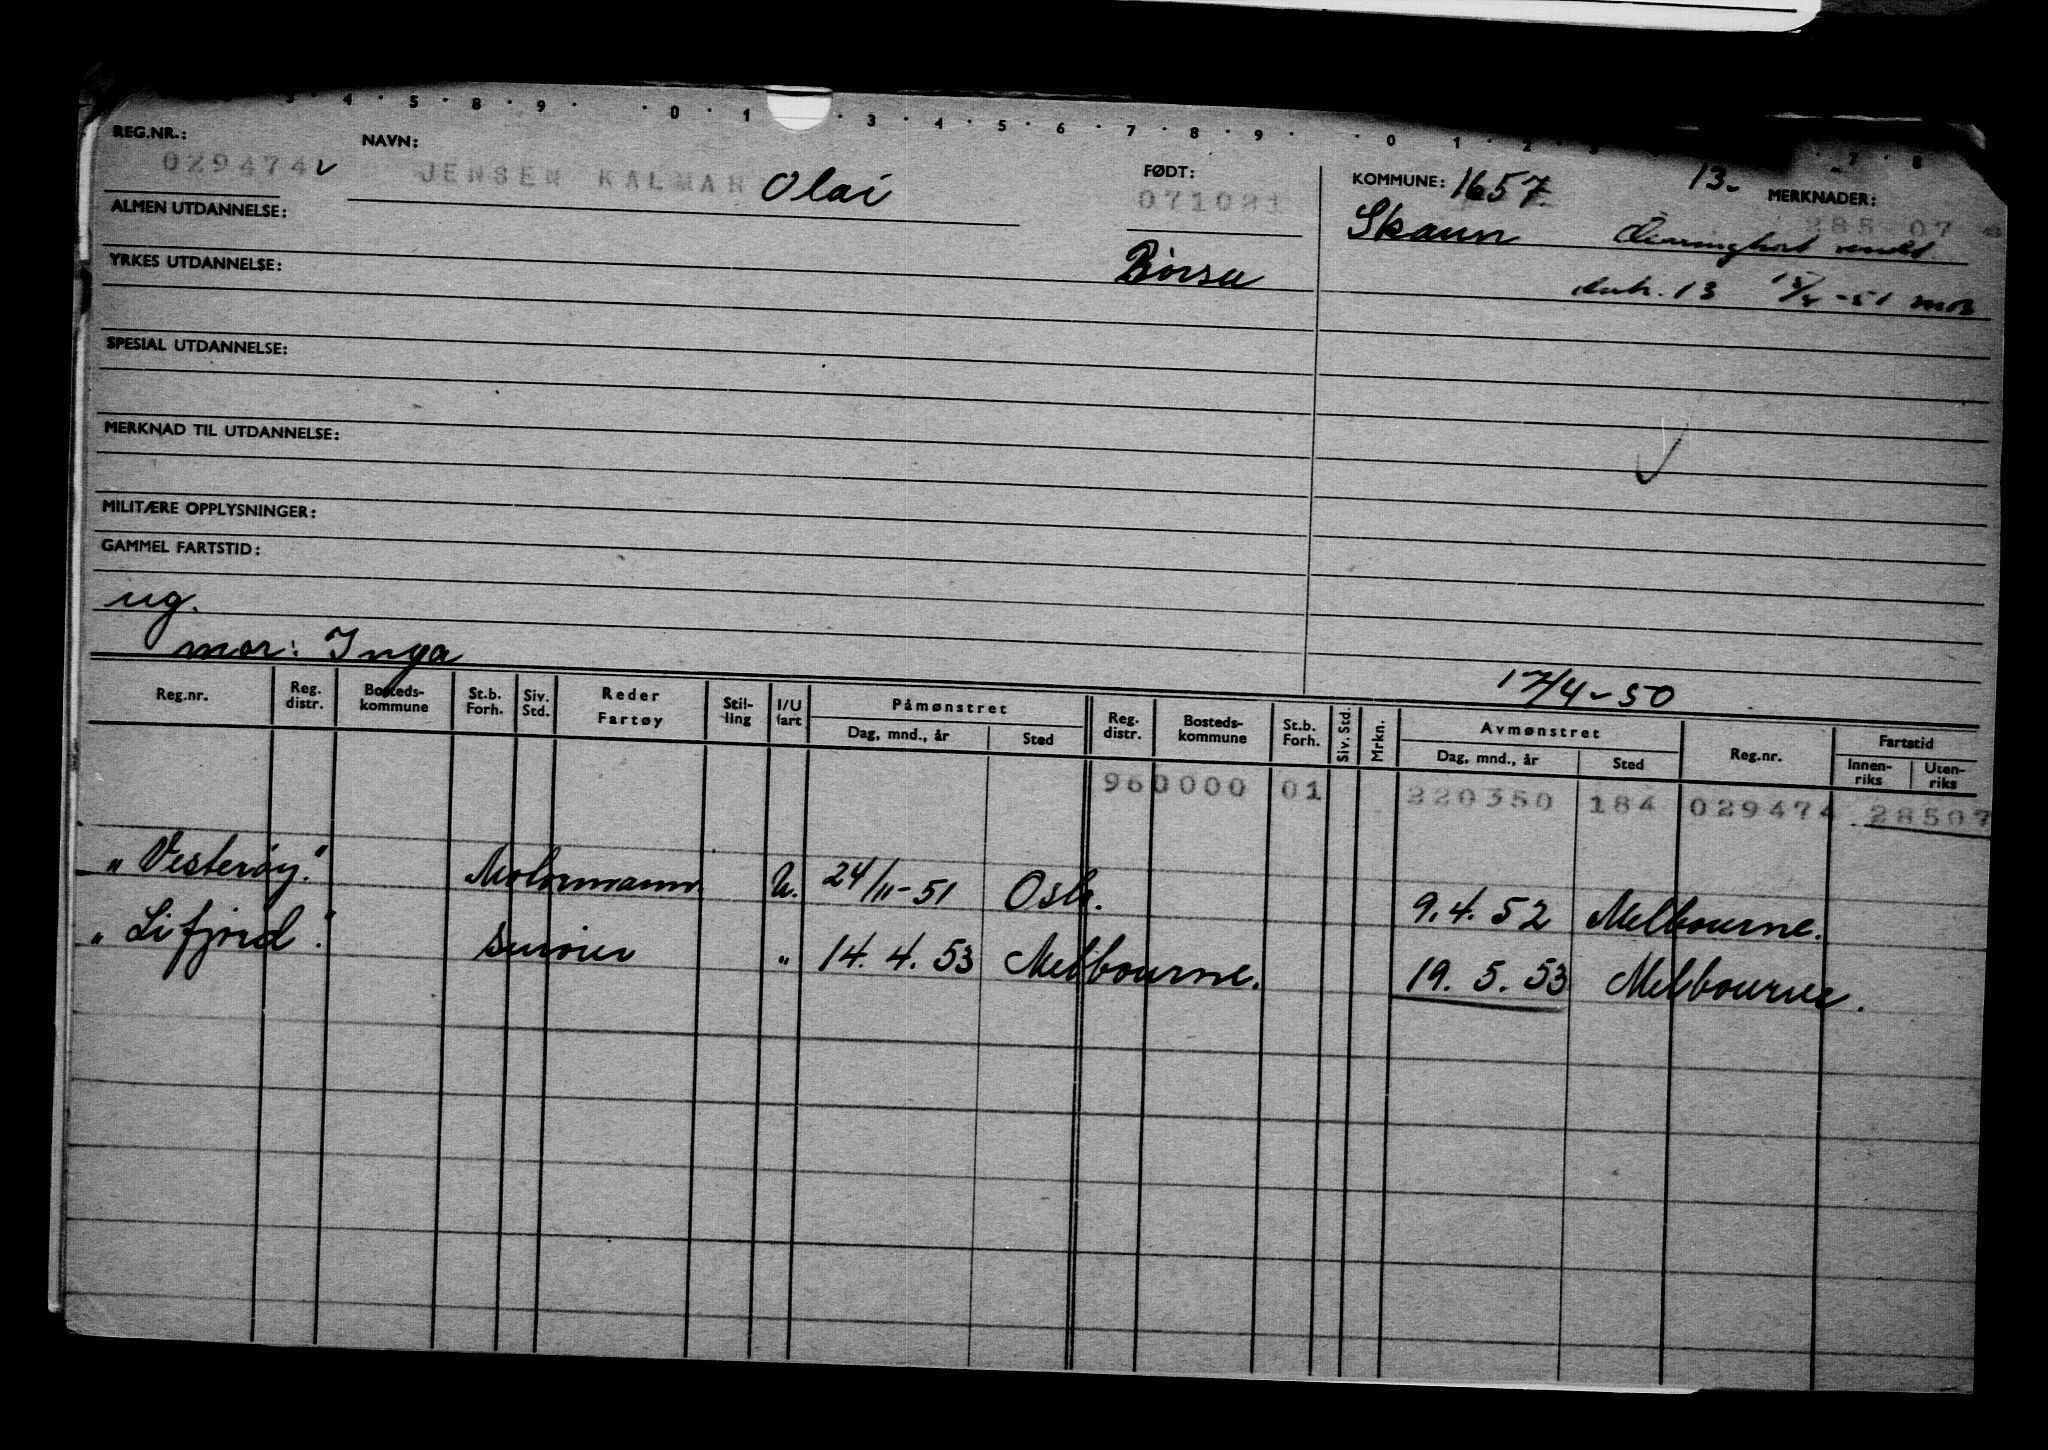 REG.NR.: 029474 NAVN: JENSEN KALMAR Olai FØDT: 071021 KOMMUNE: 1657 13- MERKNADER: 285 07
ALMEN UTDANNELSE: Skaun
YRKES UTDANNELSE: Börsa 13 15/4-51
SPESIAL UTDANNELSE:
MERKNAD TIL UTDANNELSE:
MILITÆRE OPPLYSNINGER:
GAMMEL FARTSTID:
ug.
mor: Inga
17/4-50
Reg.nr. Reg. distr. Bosteds-kommune St.b. Forh. Siv. Std. Reder Fartøy Stil-ling I/U fart Påmønstret Dag, mnd., år Sted Reg. distr. Bosteds-kommune St.b. Forh. Siv. Std. Mrkn. Avmønstret Dag, mnd., år Sted Reg.nr. Fartstid Innen-riks Uten-riks
960000 01 220350 184 029474 28507
"Vesterøy." Motormann U. 24/11-51 Oslo. 9.4.52 Melbourne.
"Lifjord." " 14.4.53 Melbourne. 19.5.53 Melbourne.